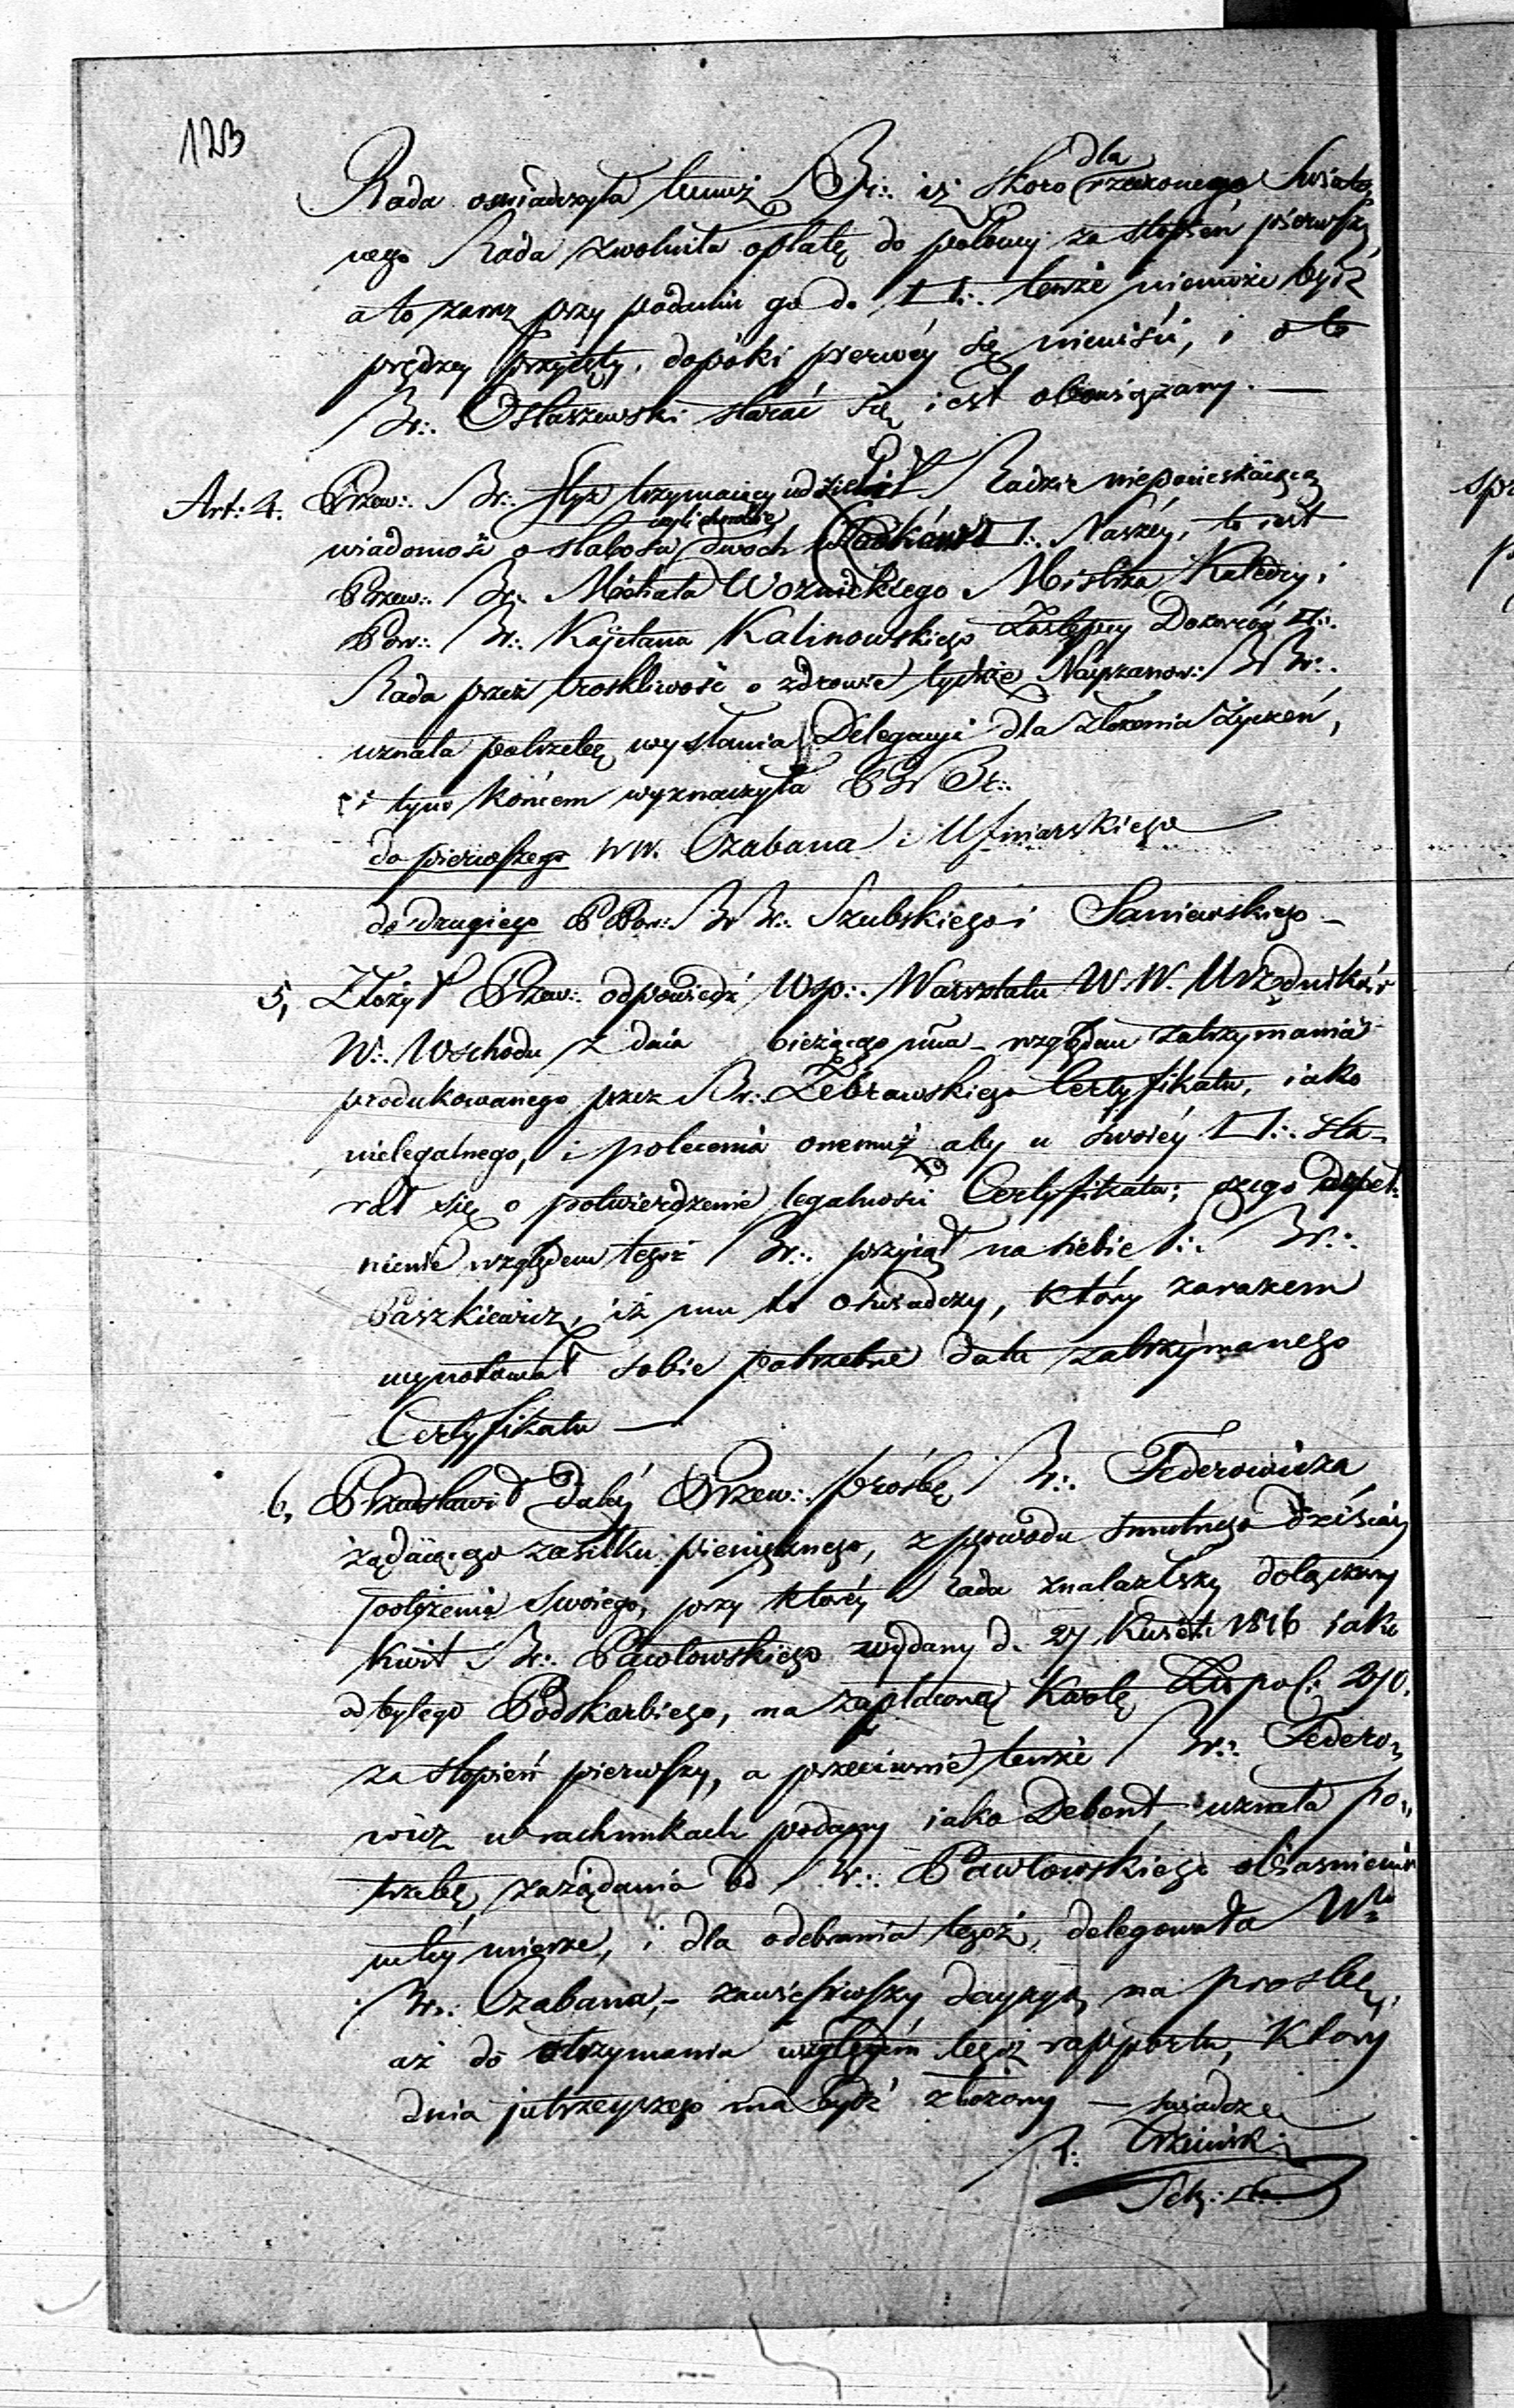 123
Rada oswiadczyła temuż Br∴ iż skoro dla rzeczonego Swiato,
wego Rada zwolniła opłatę do połowy za stopień pierwszy,
a to zaraz przy podaniu go do □∴ tenże niemoże bydź
prędzey przyięty, dopóki pierwéy się nieuiści, i o to
Br∴ Ostaszewski starać się iest obowiązany. —
Art: 4. Przew∴ Br∴ Ster trzymaiący udzielił Radzie niepocieszaiącą
wiadomość o słabości dwóch □∴ Naszéy, to iest
Przew∴ Br∴ Michała Woznickiego Mistrza Katedry i
Pow∴ Br∴ Kajetana Kalinowskiego Zastępcy Dozorców □∴.
Rada przez troskliwość o zdrowie tychże Nayszanow: BBr∴
uznała potrzebę wysłania Delegacyi dla złożenia Życzeń,
i tym końcem wyznaczyła PW Br∴
do pierwszego WW. Czabana i Ufniarskiego
do drugiego PPow∴ BBr∴ Szubskiego i Saniewskiego –
5, Złożył Przew∴ odpowiedź Wsp∴ Warsztatu W. W. Urzędników
W∴ Wschodu z dnia bieżącego mca – względem zatrzymania
produkowanego przez Br∴ Zebrawskiego Certyfikatu, iako
nielegalnego, i polecenia onemuż aby u swoiéy □∴ sta-
rał się o potwierdzenie legalności Certyfikatu; czego dopeł-
nienie względem tegoż Br∴ przyiął na siebie P∴ Br∴
Paszkiewicz, iż mu to oświadczy, który zarazem
wynotował sobie potrzebne data zatrzymanego
Certyfikatu —
6, Przedstawił daléy Przew∴ prośbę Br∴ Federowicza
żądaiącego zasiłku pieniężnego, z powodu smutnego dzisiay
położenia swoiego, przy któréy Rada znalazłszy dołączony
kwit Br∴ Pawłowskiego wydany d. 27 Kwiet: 1816 iako
od byłego Podskarbiego, na zapłaconą kwotę Złt pol: 270.
za stopień pierwszy, a przeciwnie tenże Br∴ Federo,
wicz w rachunkach podany iako Debent, uznała po,
trzebę zażądania od Br∴ Pawłowskiego obiasnienia
w téy mierze, i dla odebrania tegoż, delegowała W∴
Br∴ Czabana, – zawiesiwszy decyzyą na prosbę,
aż do otrzymania względem tegoż rapportu, który
dnia jutrzeyszego ma bydź złożony — świadczę
Sek: □∴